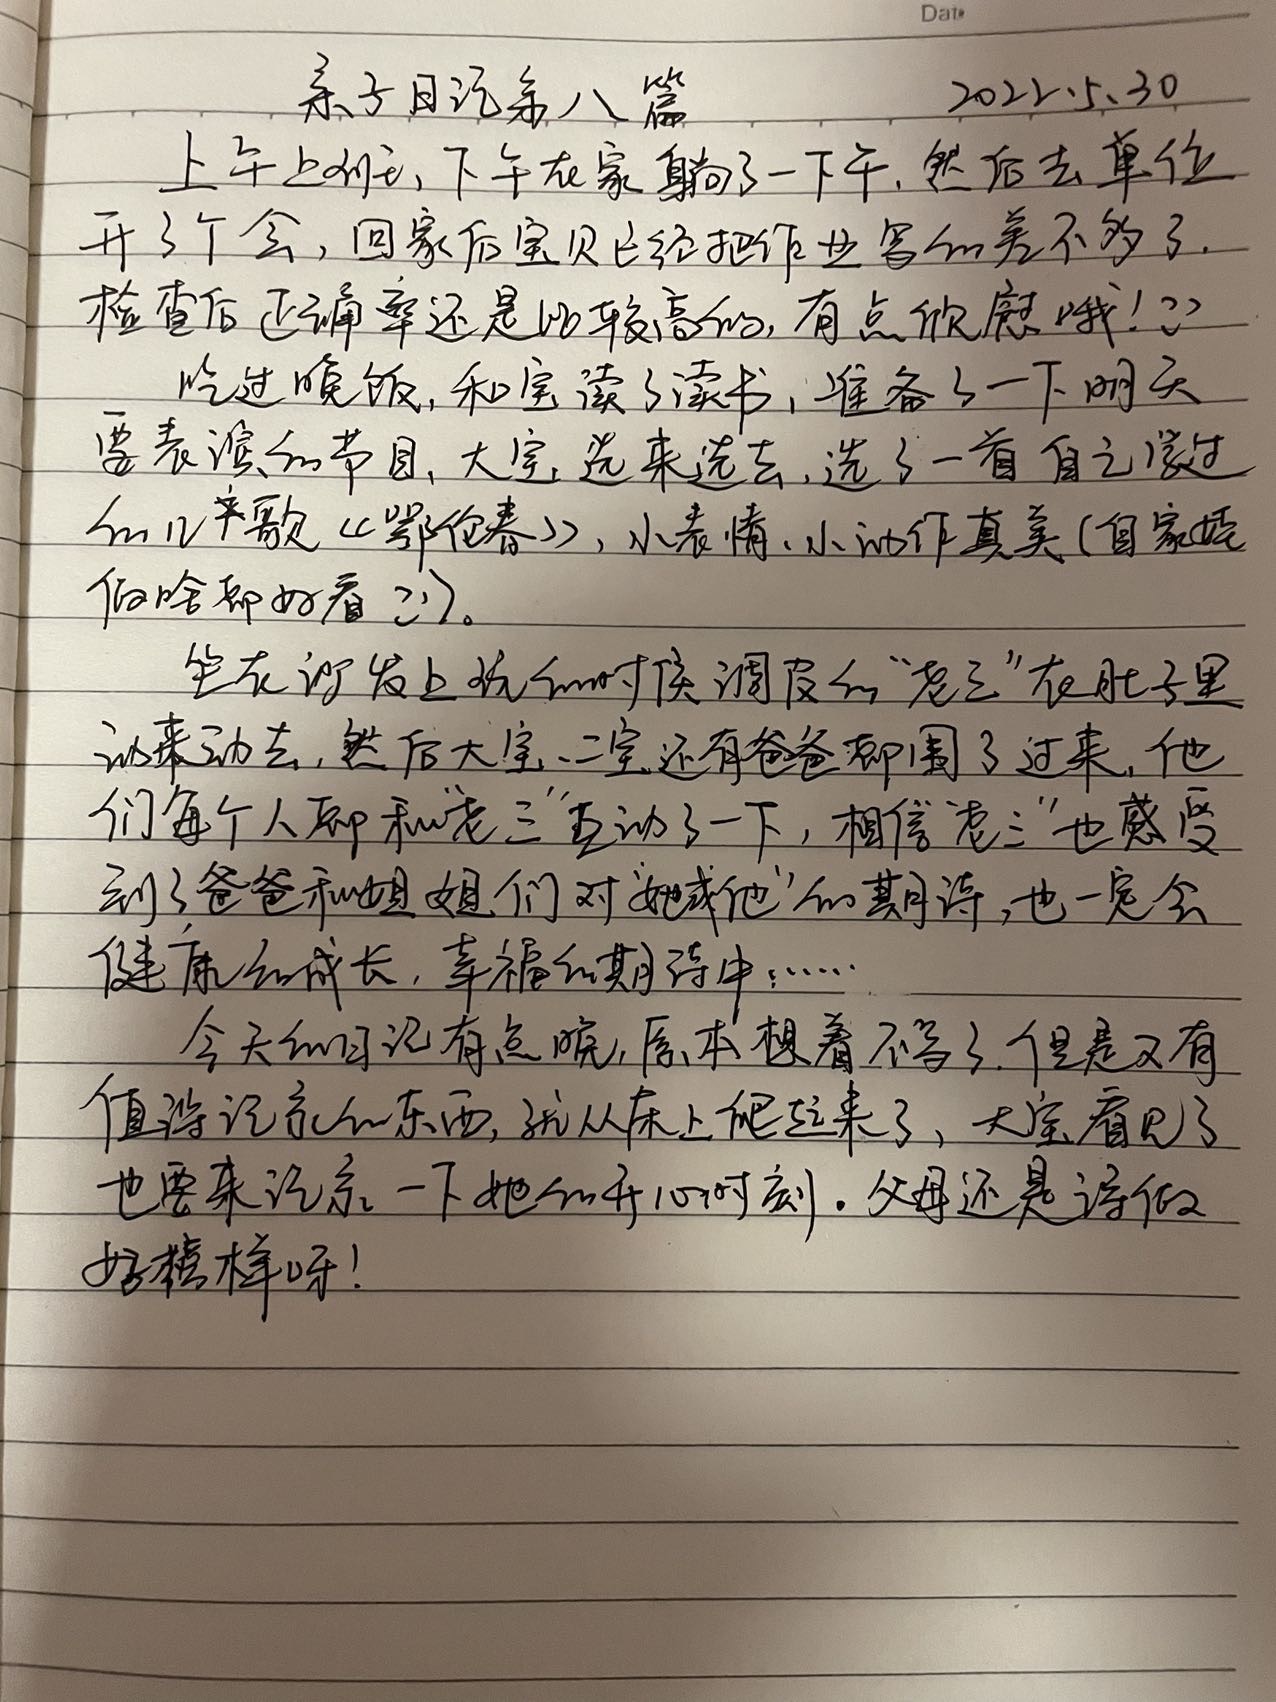 Date
亲子日记第八篇 2022.5.30
上午上班,下午在家躺了一下午,然后去单位
开了个会,回家后宝贝已经把作业写的差不多了.
检查后正确率还是比较高的,有点欣慰哦!
吃过晚饭,和宝读了读书,准备了一下明天
要表演的节目,大宝选来选去,选了一首自己学过
的儿歌《鄂伦春》,小表情、小动作真美(自家娃
做啥都好看)。
坐在沙发上玩的时候调皮的“老三”在肚子里
动来动去,然后大宝、二宝还有爸爸都围了过来,他
们每个人都和“老三”互动了一下,相信“老三”也感受
到了爸爸和姐姐们对“她或他”的期待,也一定会
健康的成长,幸福的期待中:……
今天的日记有点晚,原本想着不写了.但是又有
值得记录的东西,就从床上爬起来了,大宝看见了
也要来记录一下她的开心时刻.父母还是得做
好榜样呀!